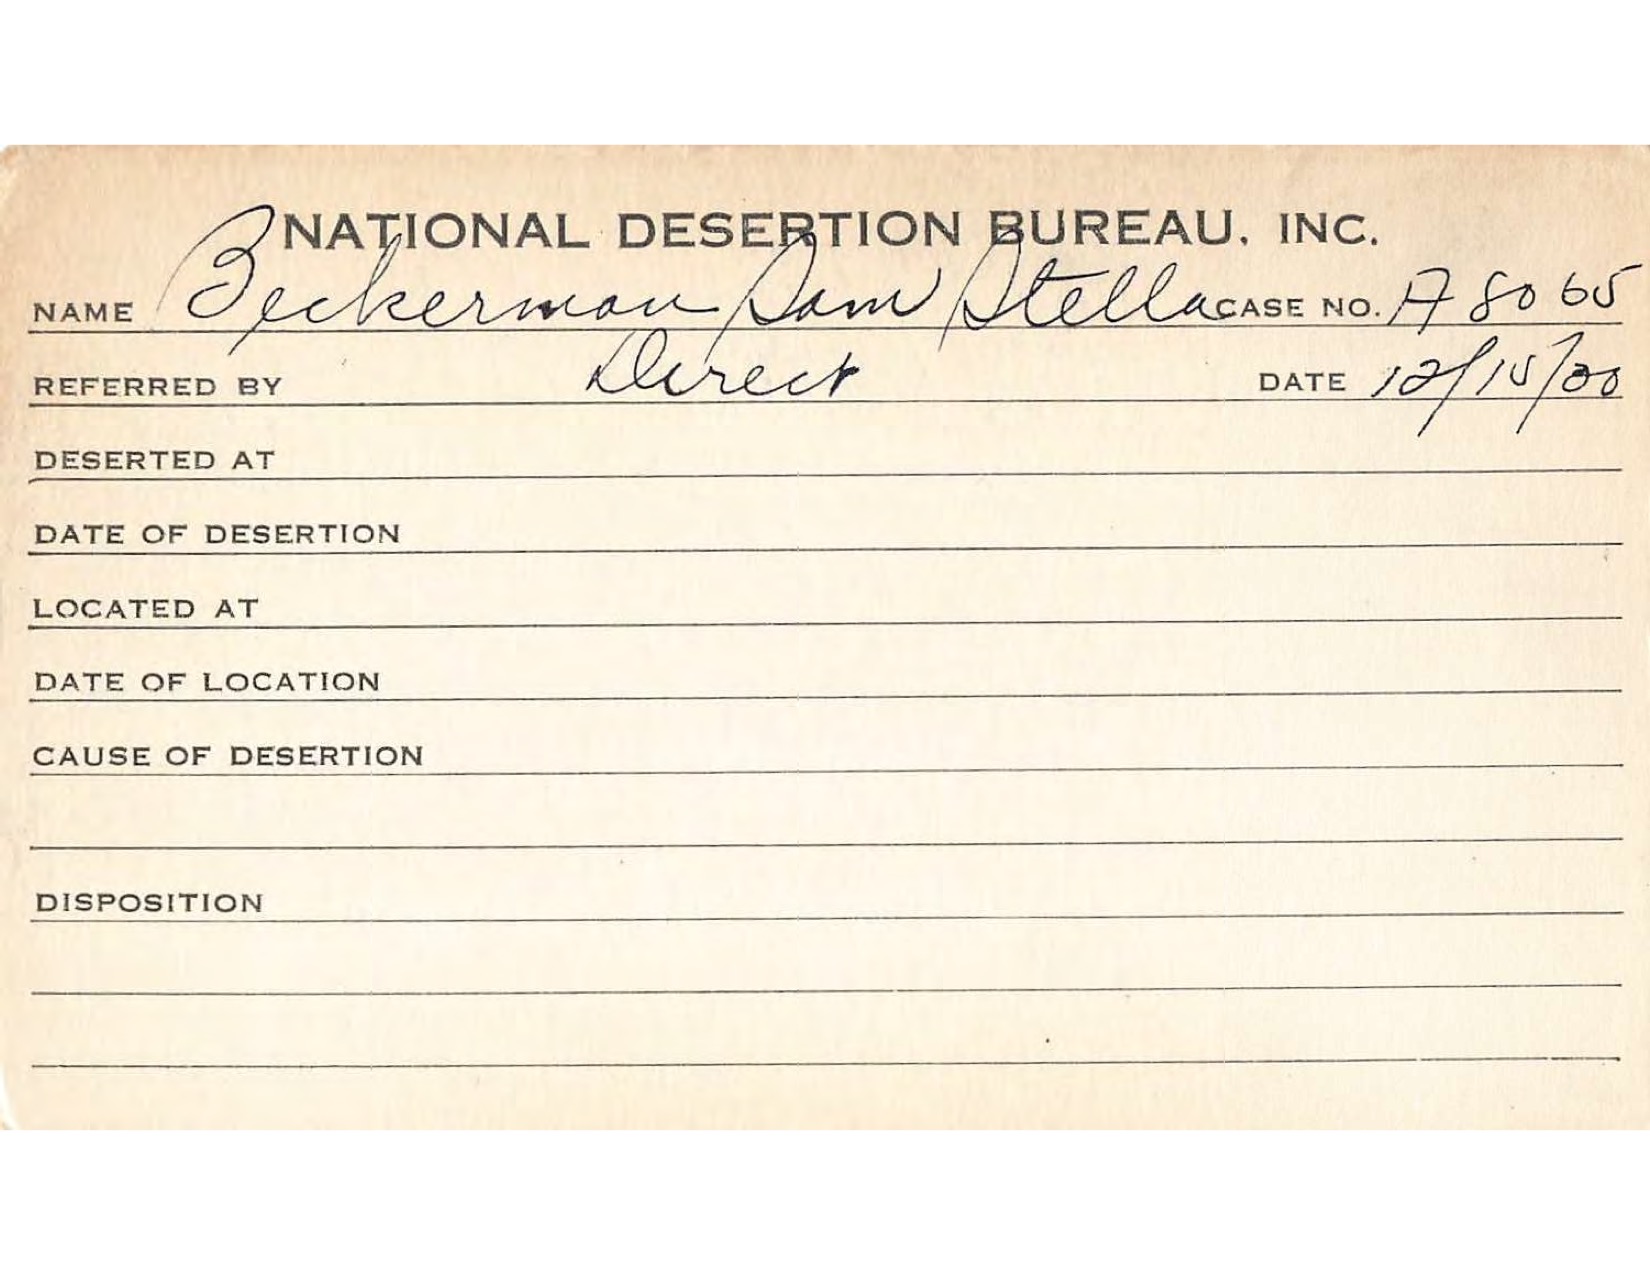 NATIONAL DESERTION BUREAU, INC.
NAME Beckerman Sam Stella CASE NO. A 8065
REFERRED BY Direct DATE 12/15/30
DESERTED AT
DATE OF DESERTION
LOCATED AT
DATE OF LOCATION
CAUSE OF DESERTION
DISPOSITION